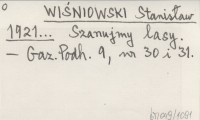 WIŚNIOWSKI Stanisław
1921... Szanujmy lasy.
— Gaz. Podh. 9, nr 30 i 31.